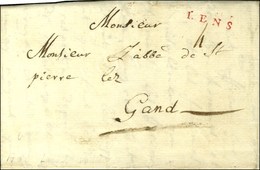 Monsieur
LENS
4
Monsieur L'abbé de St
pierre lez
Gand